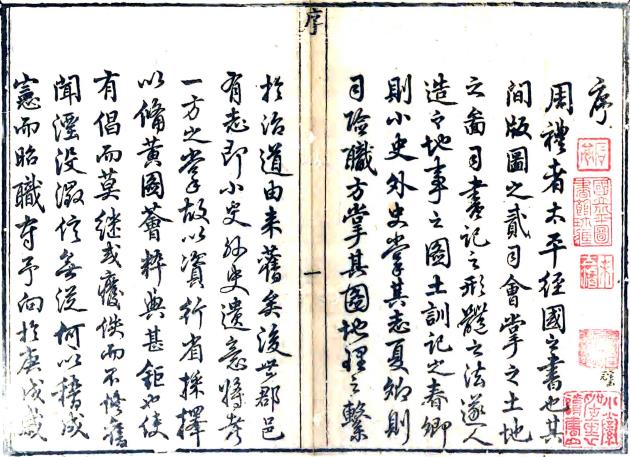 序
周禮者太平經國之書也其
間版圖之貳司會掌之土地
之圖司書記之形體之法遂人
造之地事之圖土訓記之春卿
則小史外史掌其志夏卿則
司險職方掌其圖地理之繫
序
一
於治道由來舊矣後世郡邑
有志即小史外史遺意將考
一方之掌故以資行省採擇
以備黃圖薈粹典甚鉅也使
有倡而莫繼或廢佚而不脩舊
聞湮沒徵信無從何以稽成
憲而昭職守予向於庚戌歲